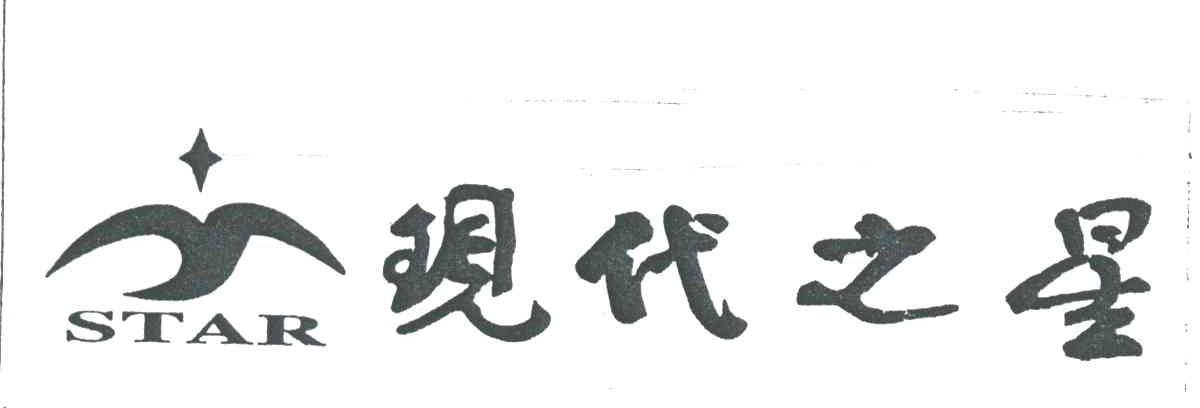 STAR
現代之星